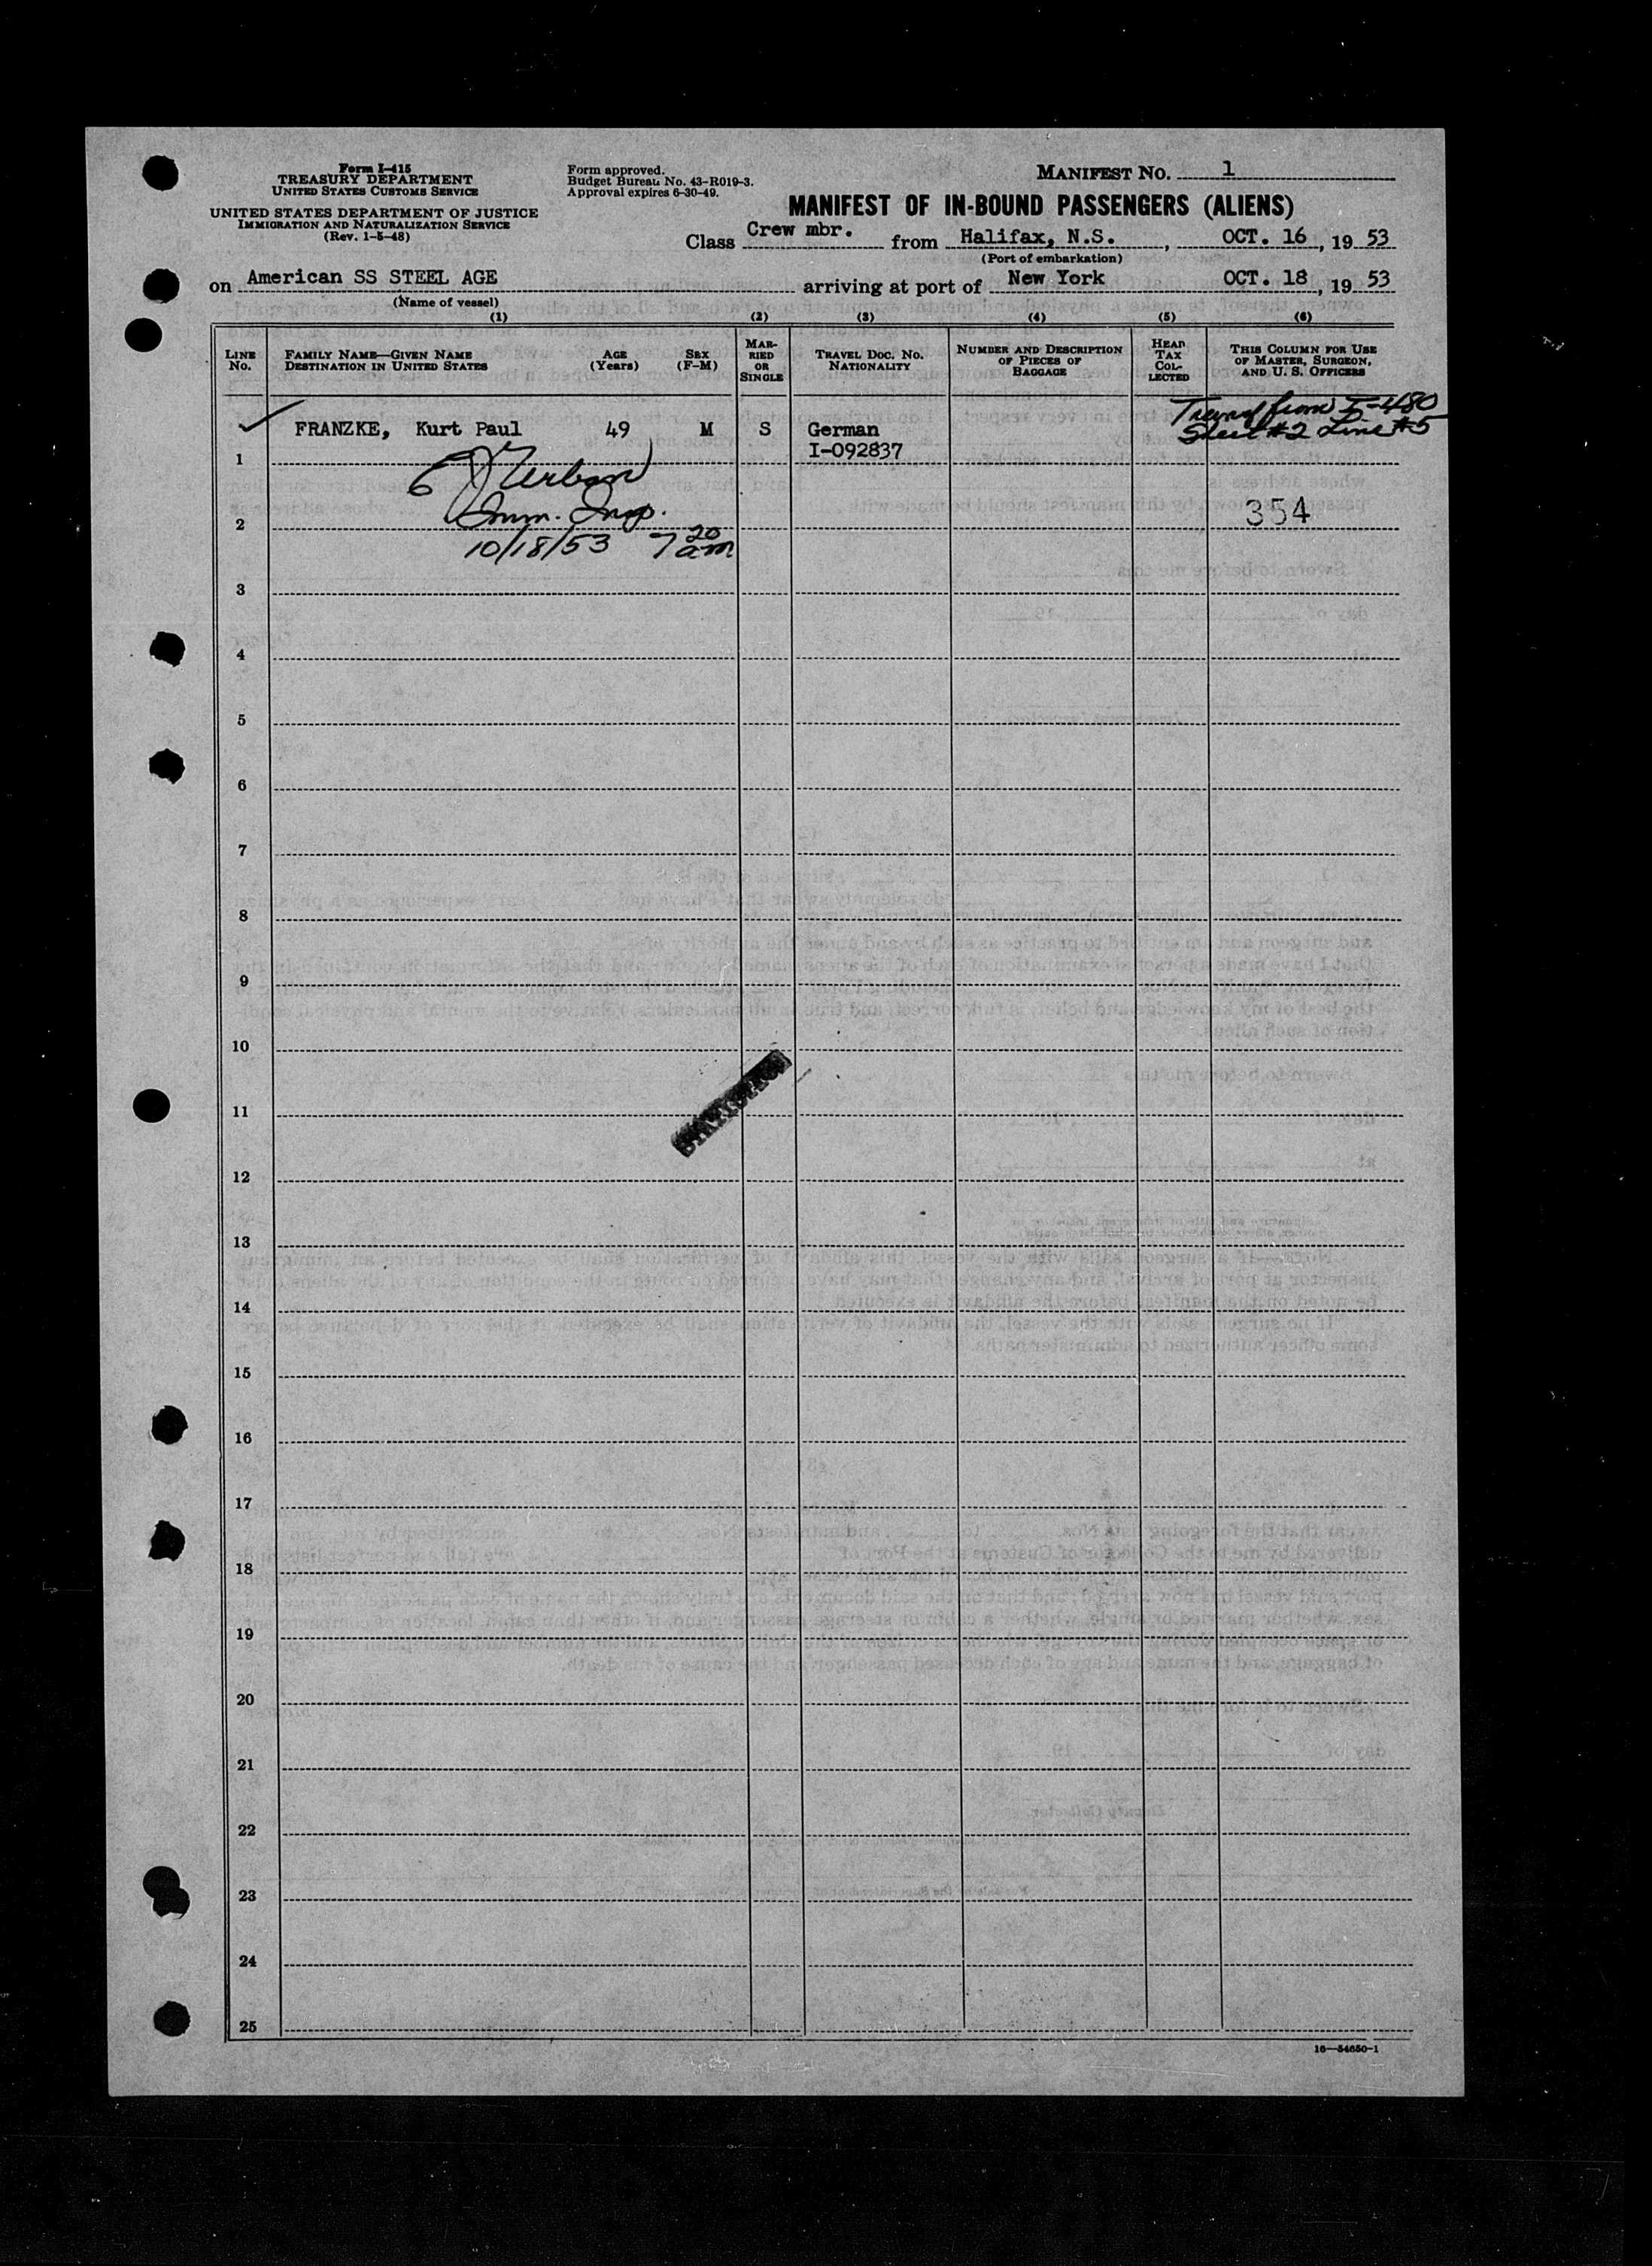 Form I-415
TREASURY DEPARTMENT
UNITED STATES CUSTOMS SERVICE
UNITED STATES DEPARTMENT OF JUSTICE
IMMIGRATION AND NATURALIZATION SERVICE
(Rev. 1-5-48)
Form approved.
Budget Bureau No. 43-R019-3.
Approval expires 6-30-49.
MANIFEST NO. 1
MANIFEST OF IN-BOUND PASSENGERS (ALIENS)
Class Crew mbr. from Halifax, N.S., OCT. 16, 19 53
(Port of embarkation)
on American SS STEEL AGE arriving at port of New York OCT. 18, 19 53
(Name of vessel)
(1) (2) (3) (4) (5) (6)
LINE No.
FAMILY NAME—GIVEN NAME
DESTINATION IN UNITED STATES
AGE (Years)
SEX (F-M)
MARRIED OR SINGLE
TRAVEL DOC. NO.
NATIONALITY
NUMBER AND DESCRIPTION OF PIECES OF BAGGAGE
HEAD TAX COLLECTED
THIS COLUMN FOR USE OF MASTER, SURGEON, AND U. S. OFFICERS
from I-480
Sheet #2 Line #5
FRANZKE, Kurt Paul 49 M S German
1 I-092837
Imm. Insp.
2 354
10/18/53 7 20 am
3
4
5
6
7
8
9
10
11
12
13
14
15
16
17
18
19
20
21
22
23
24
25
16—54650-1